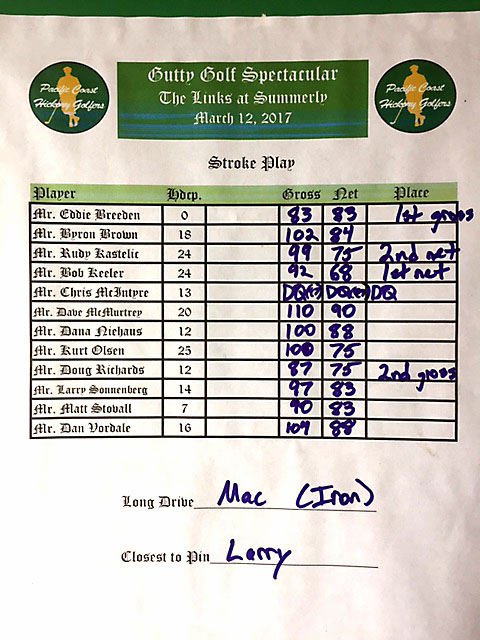 Pacific Coast Hickory Golfers
Gutty Golf Spectacular
The Links at Summerly
March 12, 2017
Pacific Coast Hickory Golfers
Stroke Play
Player Hdcp. Gross Net Place
Mr. Eddie Breeden 0 83 83 1st gross
Mr. Byron Brown 18 102 84
Mr. Rudy Kastelic 24 99 75 2nd net
Mr. Bob Keeler 24 92 68 1st net
Mr. Chris McIntyre 13 DQ DQ DQ
Mr. Dave McMurtrey 20 110 90
Mr. Dana Niehaus 12 100 88
Mr. Kurt Olsen 25 100 75
Mr. Doug Richards 12 87 75 2nd gross
Mr. Larry Sonnenberg 14 97 83
Mr. Matt Stovall 7 90 83
Mr. Dan Vordale 16 104 88
Long Drive Mac (Iron)
Closest to Pin Larry